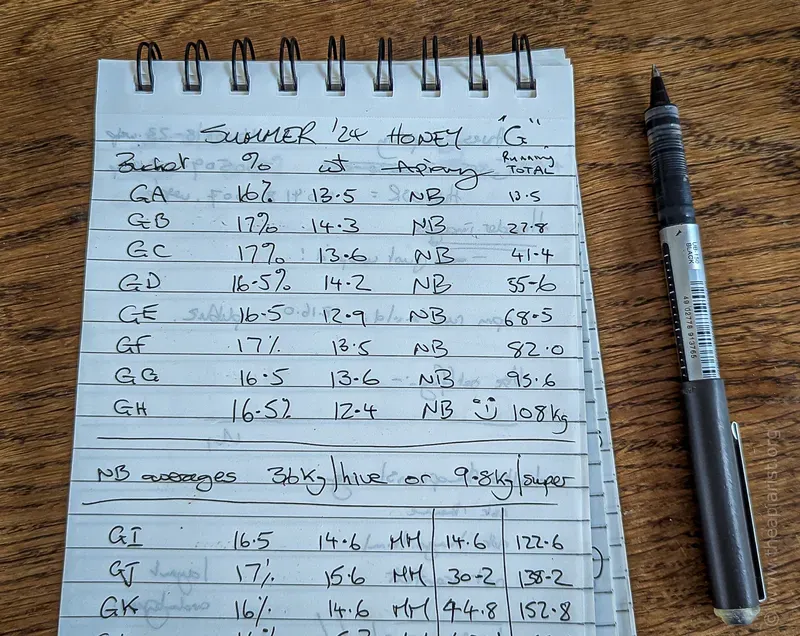 SUMMER '24 HONEY "G"
Bucket % wt Apiary Running TOTAL
GA 16% 13.5 NB 13.5
GB 17% 14.3 NB 27.8
GC 17% 13.6 NB 41.4
GD 16.5% 14.2 NB 55.6
GE 16.5 12.9 NB 68.5
GF 17% 13.5 NB 82.0
GG 16.5 13.6 NB 95.6
GH 16.5% 12.4 NB :) 108kg
NB averages 36kg/hive or 9.8kg/super
GI 16.5 14.6 MH 14.6 122.6
GJ 17% 15.6 MH 30.2 138.2
GK 16% 14.6 MH 44.8 152.8
UB-150
BLACK
49 02778 913765
© www.theapiarist.org